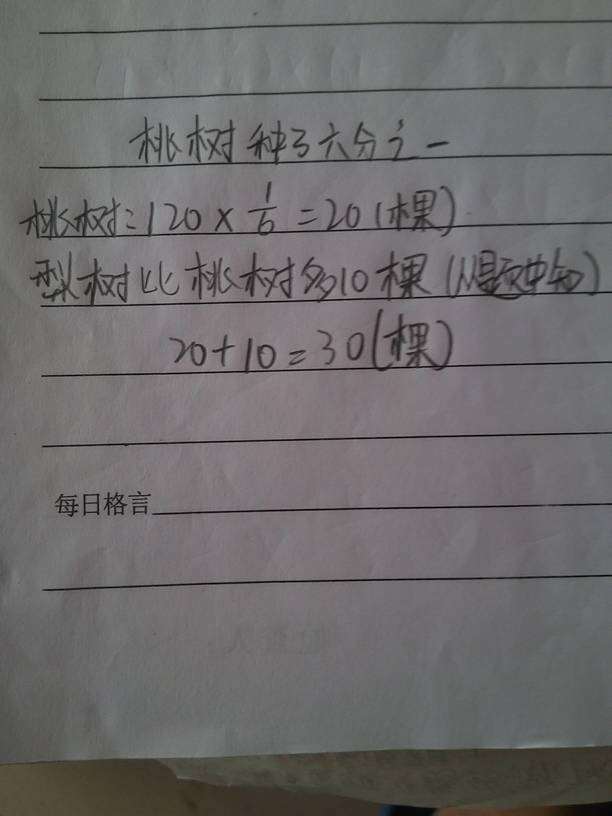 桃树种了六分之一
桃树:120×1/6=20(棵)
梨树比桃树多10棵(从题中知)
20+10=30(棵)
每日格言